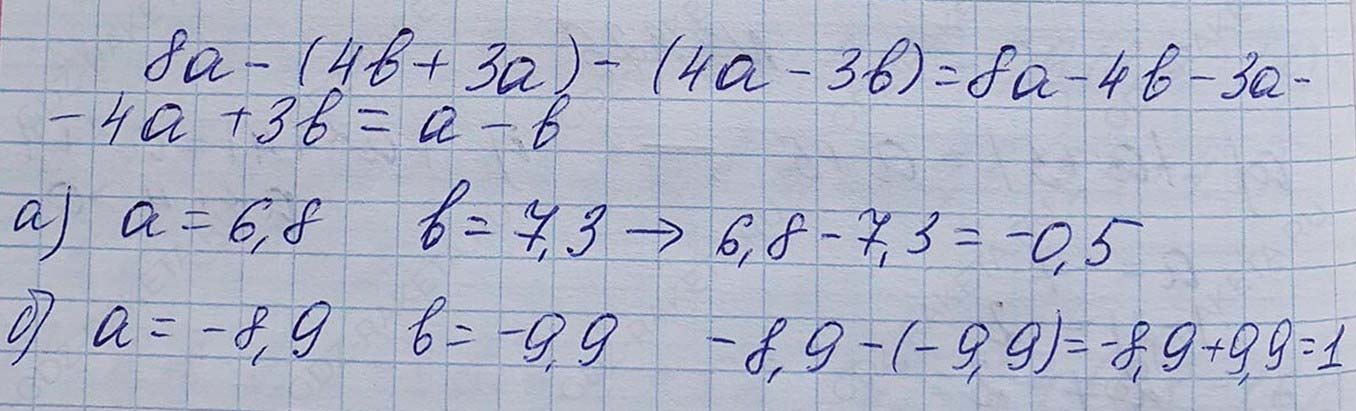 8а - (4в + 3а) - (4а - 3в) = 8а - 4в - 3а -
- 4а + 3в = а - в
а) а = 6,8 в = 7,3 → 6,8 - 7,3 = -0,5
б) а = -8,9 в = -9,9 -8,9 - (-9,9) = -8,9 + 9,9 = 1